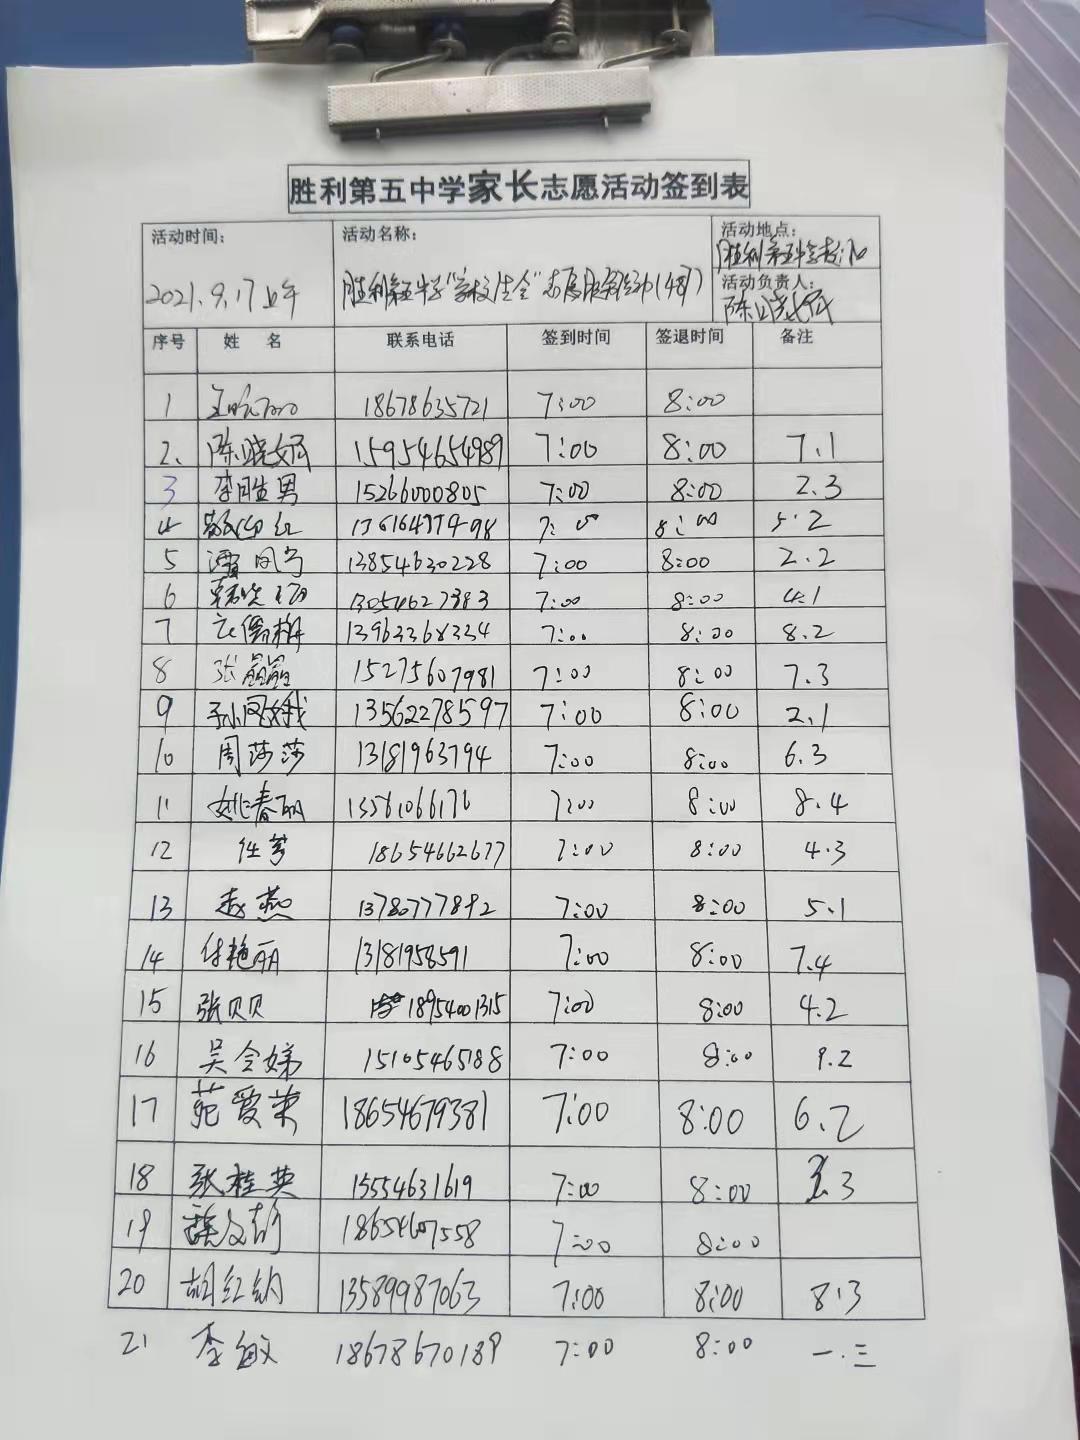 胜利第五中学家长志愿活动签到表
活动时间: 活动名称: 活动地点:
2021.9.17上午 胜利第五中学"学校 志愿服务活动 胜利第五中学校
活动负责人: 陈晓妮
序号 姓 名 联系电话 签到时间 签退时间 备注
1 18678635721 7:00 8:00
2、 陈晓妮 15954654989 7:00 8:00 7.1
3 李胜男 15266000805 7:00 8:00 2.3
4 7:00 8:00 5.2
5 13854630228 7:00 8:00 2.2
6 13054627383 7:00 8:00 4.1
7 13963368334 7:00 8:00 8.2
8 张 15275607981 7:00 8:00 7.3
9 孙凤娥 13562278597 7:00 8:00 2.1
10 周莎莎 13181963794 7:00 8:00 6.3
11 姚春丽 7:00 8:00 8.4
12 任 18654662677 7:00 8:00 4.3
13 赵燕 13780777892 7:00 8:00 5.1
14 付艳丽 13181958591 7:00 8:00 7.4
15 张贝贝 18954001315 7:00 8:00 4.2
16 吴令娣 15105465188 7:00 8:00 1.2
17 苑爱荣 18654679381 7:00 8:00 6.2
18 张桂英 15554631619 7:00 8:00 .3
19 薛文 18654607558 7:00 8:00
20 胡红娟 13589987063 7:00 8:00 8.3
21 李敏 18678670189 7:00 8:00 一.三